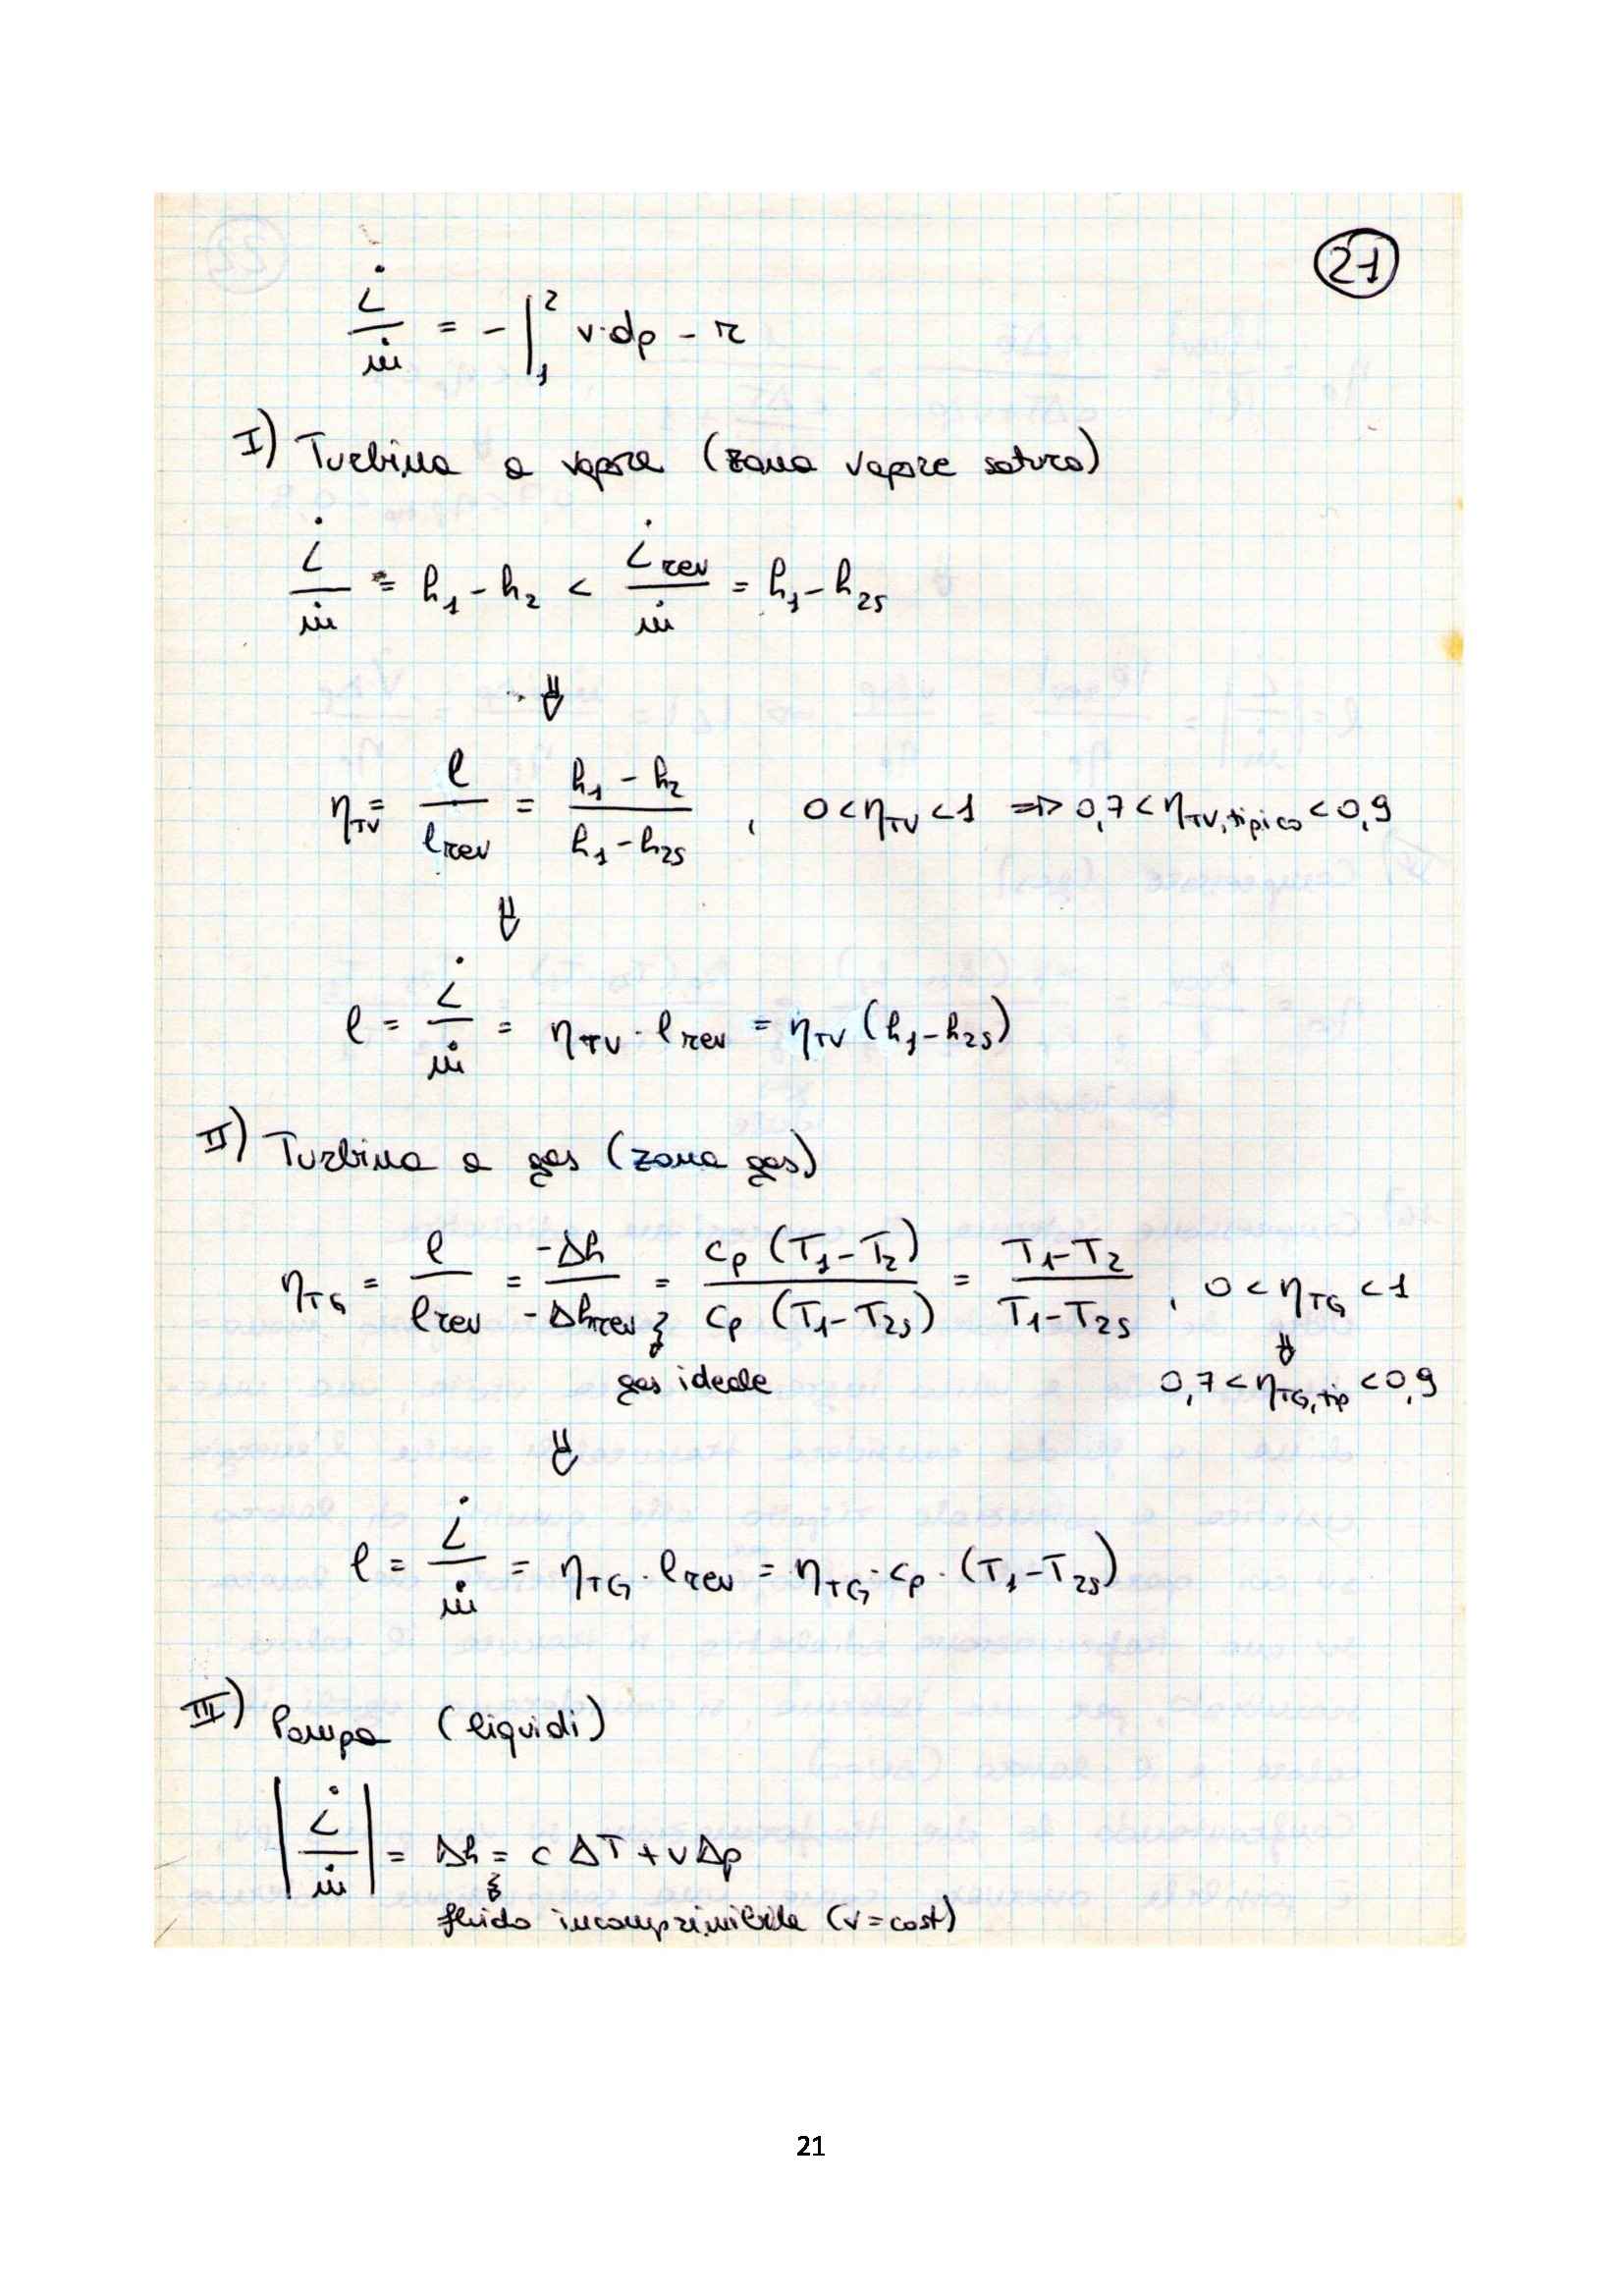 21
L̇/ṁ = - ∫₁² v·dp - r
I) Turbina a vapore (zona vapore saturo)
L̇/ṁ = h₁ - h₂ < L̇rev/ṁ = h₁ - h₂s
⇓
ηTV = l/lrev = (h₁ - h₂)/(h₁ - h₂s) , 0 < ηTV < 1 ⇒ 0,7 < ηTV,tipico < 0,9
⇓
l = L̇/ṁ = ηTV · lrev = ηTV (h₁ - h₂s)
II) Turbina a gas (zona gas)
ηTG = l/lrev = -Δh/-Δhrev = cp (T₁ - T₂)/cp (T₁ - T₂s) = (T₁ - T₂)/(T₁ - T₂s) , 0 < ηTG < 1
⇓
gas ideale 0,7 < ηTG,tip < 0,9
⇓
l = L̇/ṁ = ηTG · lrev = ηTG · cp · (T₁ - T₂s)
III) Pompa (liquidi)
|L̇/ṁ| = Δh = c ΔT + v Δp
fluido incomprimibile (v = cost)
21